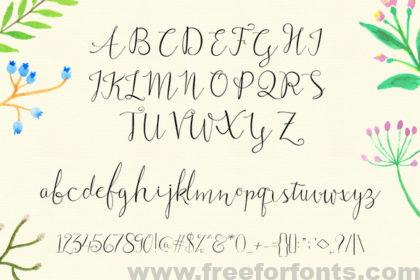 A B C D E F G H I
J K L M N O P Q R S
T U V W X Y Z
abcdefghijklmnopqrstuvwxyz
1234567890!@#$%^&*()_+-={}[]:";'<>,.?/|\
www.freeforfonts.com